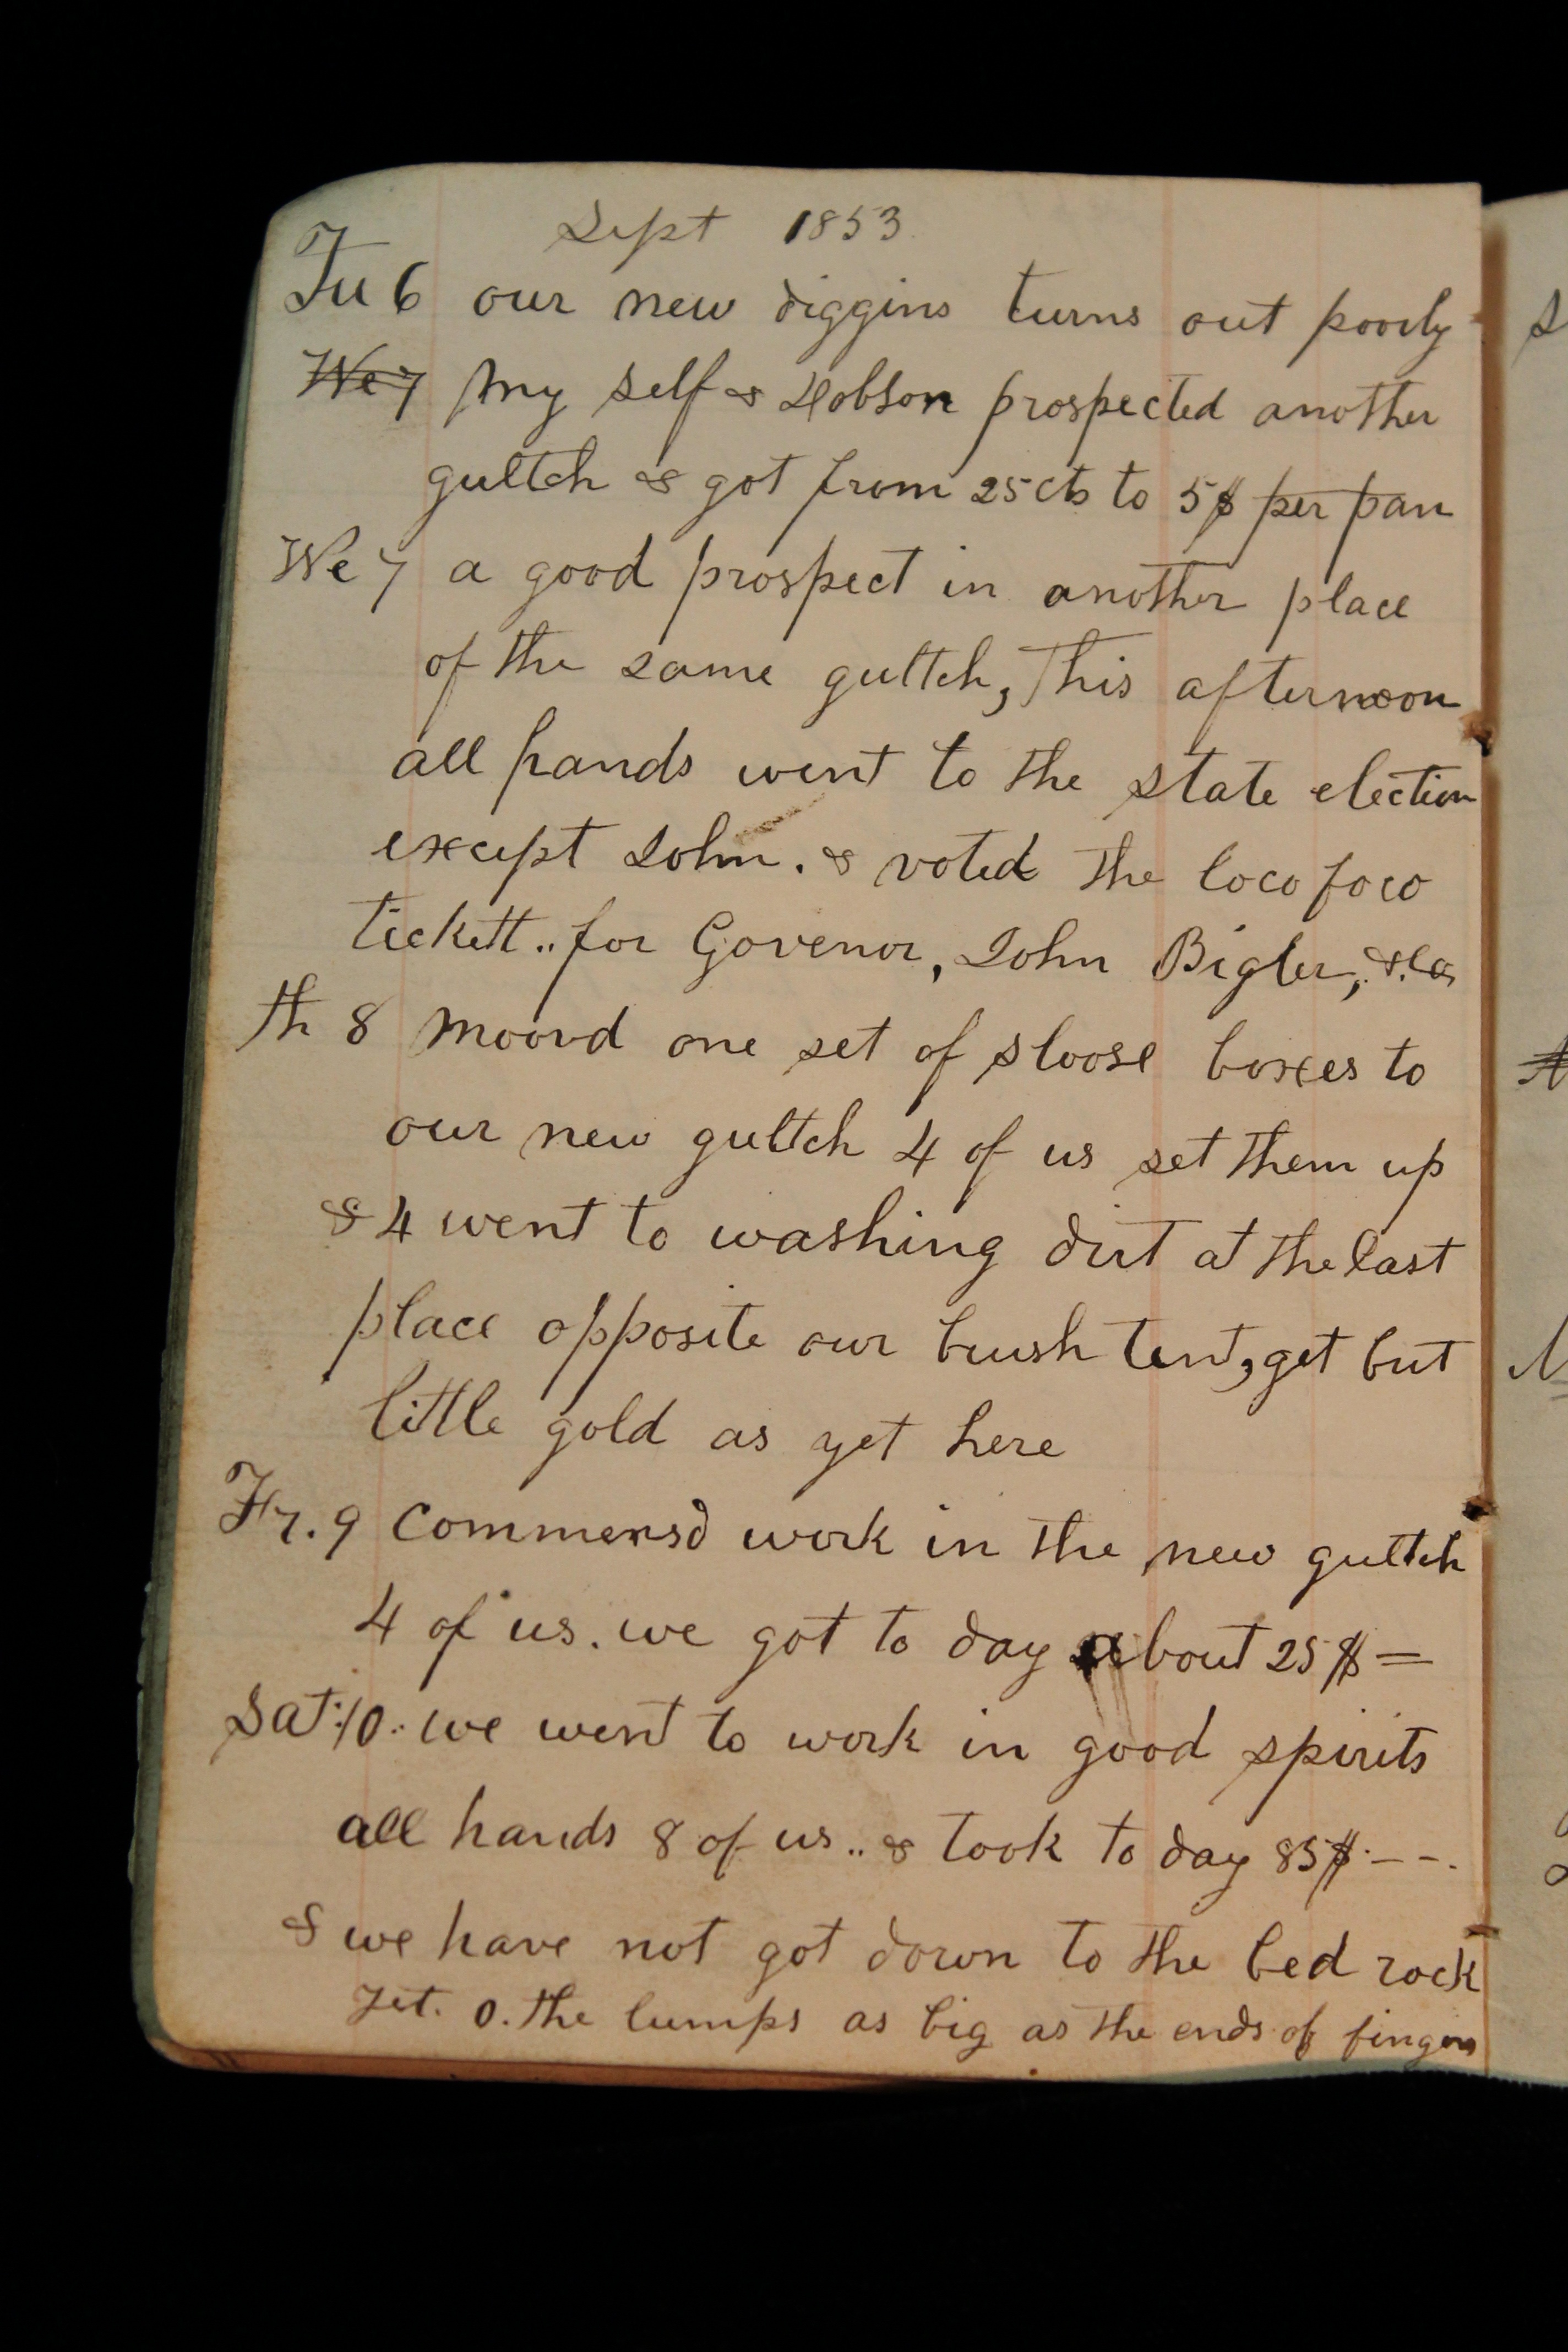 Sept 1853
Tu 6 our new diggins turns out poorly
We 7 my self & Hobson prospected another
gultch & got from 25 cts to 5$ per pan
We 7 a good prospect in another place
of the same gultch, This afternoon
all hands went to the state election
except John. & voted the loco foco
tickett.. for Govenor, John Bigler, &.c
th 8 moovd one set of sloose boxes to
our new gultch 4 of us set them up
& 4 went to washing dirt at the last
place opposite our brush tent, get but
little gold as yet here
Fr. 9 commensd work in the new gultch
4 of us. we got to day about 25$ =
Sat: 10.. we went to work in good spirits
all hands 8 of us.. & took to day 85$ - - -.
& we have not got down to the bed rock
yet. O. the lumps as big as the ends of fingers